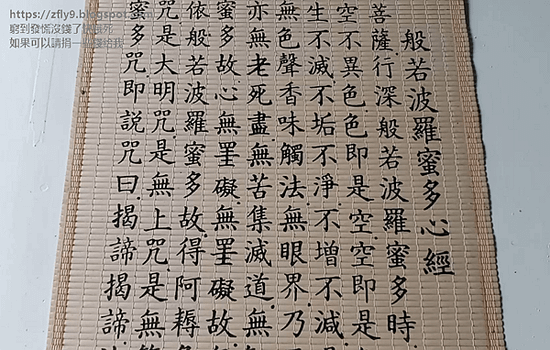 https://zfly9.blogspot.
窮到發慌沒錢了
如果可以請捐一
般若波羅蜜多心經
菩薩行深般若波羅蜜多時
空不異色色即是空空即是
生不滅不垢不淨不增不減
無色聲香味觸法無眼界乃
亦無老死盡無苦集滅道無
蜜多故心無罣礙無罣礙故
依般若波羅蜜多故得阿耨
咒是大明咒是無上咒是無
蜜多咒即說咒曰揭諦揭諦